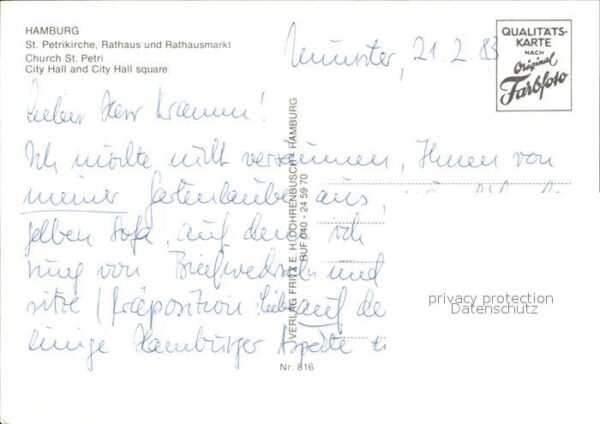 HAMBURG
St. Petrikirche, Rathaus und Rathausmarkt
Church St. Petri
City Hall and City Hall square
QUALITÄTS-
KARTE
NACH
Original
Farbfoto
Münster, 21.2.83
Lieber Herr Kramm!
Ich möchte nicht versäumen, Ihnen von
meiner Gartenlaube aus,
gelben Sofa, auf dem ich
von Briefwechseln und
sitze (Präposition: auf de
einige Hamburger Aspekte
VERLAG FRITZ E. H. DOHRENBUSCH · HAMBURG
RUF 040 - 24 59 70
privacy protection
Datenschutz
Nr. 816